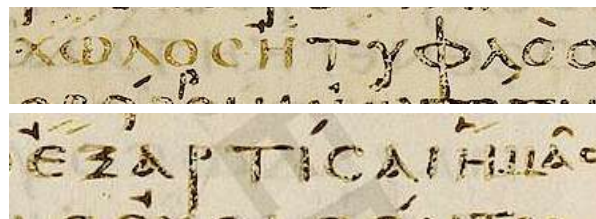 ΧΩΛΟCΗΤΥΦΛΟC
ΕΞΑΡΤΙCΑΙΗΜΑC